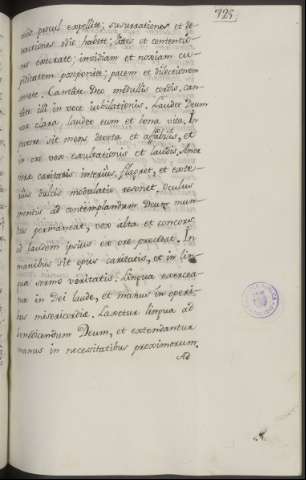 725.
procul expellite; susurrationes et de-
tractiones odio habete; lites et contentio-
nes evitate; invidiam et noxiam cu-
piditatem postponite; pacem et dilectionem
Cantate Deo medullis cordis, can-
tate illi in voce iubilationis. Laudet Deum
vox clara, laudet eum et bona vita. In
corde sit mens devota et affabilis, et
in ore vox exultationis et laudis. Amor
caritatis interius flagret, et exte-
rius dulcis modulatio resonet. Oculus
mentis ad contemplandum Deum mun-
dus permaneat, vox alta et concors
ad laudem ipsius ex ore procedat. In
manibus sit opus caritatis, et in lin-
gua sermo veritatis. Lingua exercea-
tur in Dei laude, et manus in operi-
bus misericordiae. Laxetur lingua ad
benedicendum Deum, et extendantur
manus in necessitatibus proximorum.
Ad